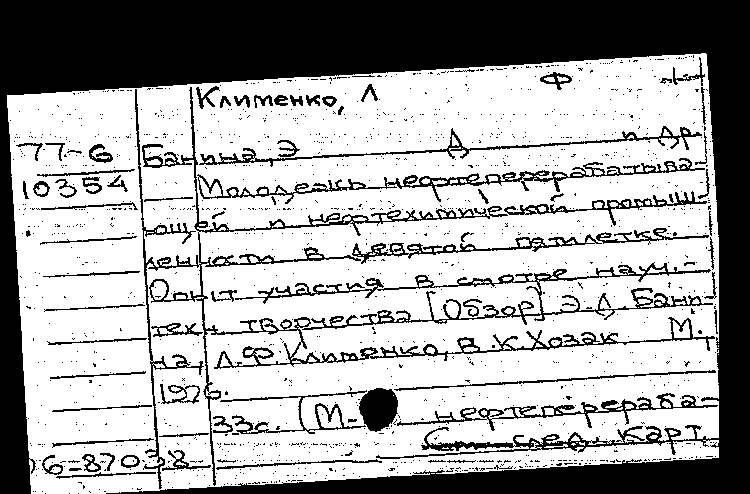 Клименко, Л Ф
77-6
10354
Банина, Э Д и др.
Молодежь нефтеперерабатыва-
ющей и нефтехимической промыш-
ленности в девятой пятилетке.
Опыт участия в смотре науч.-
техн. творчества [Обзор] Э.Д. Бани-
на, Л.Ф. Клименко, В.К. Хозак. М.,
1976.
33с. (М- нефтеперераба-
См. след. карт.
6-87038